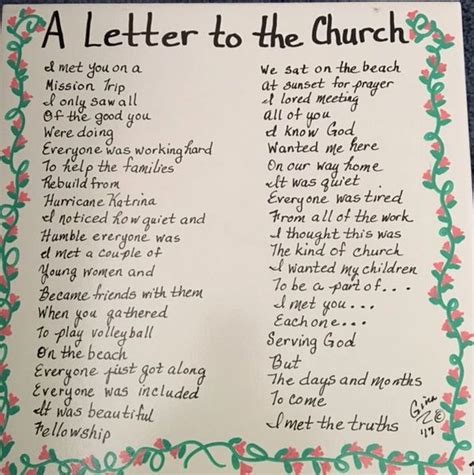 A Letter to the Church
I met you on a
Mission Trip
I only saw all
Of the good you
Were doing
Everyone was working hard
To help the families
Rebuild from
Hurricane Katrina
I noticed how quiet and
Humble everyone was
I met a couple of
Young women and
Became friends with them
When you gathered
To play volleyball
On the beach
Everyone just got along
Everyone was included
It was beautiful
Fellowship
We sat on the beach
At sunset for prayer
I loved meeting
All of you
I know God
Wanted me here
On our way home
It was quiet
Everyone was tired
From all of the work
I thought this was
The kind of church
I wanted my children
To be a part of...
I met you...
Each one...
Serving God
But
The days and months
To come
I met the truths
Gina
©
'17